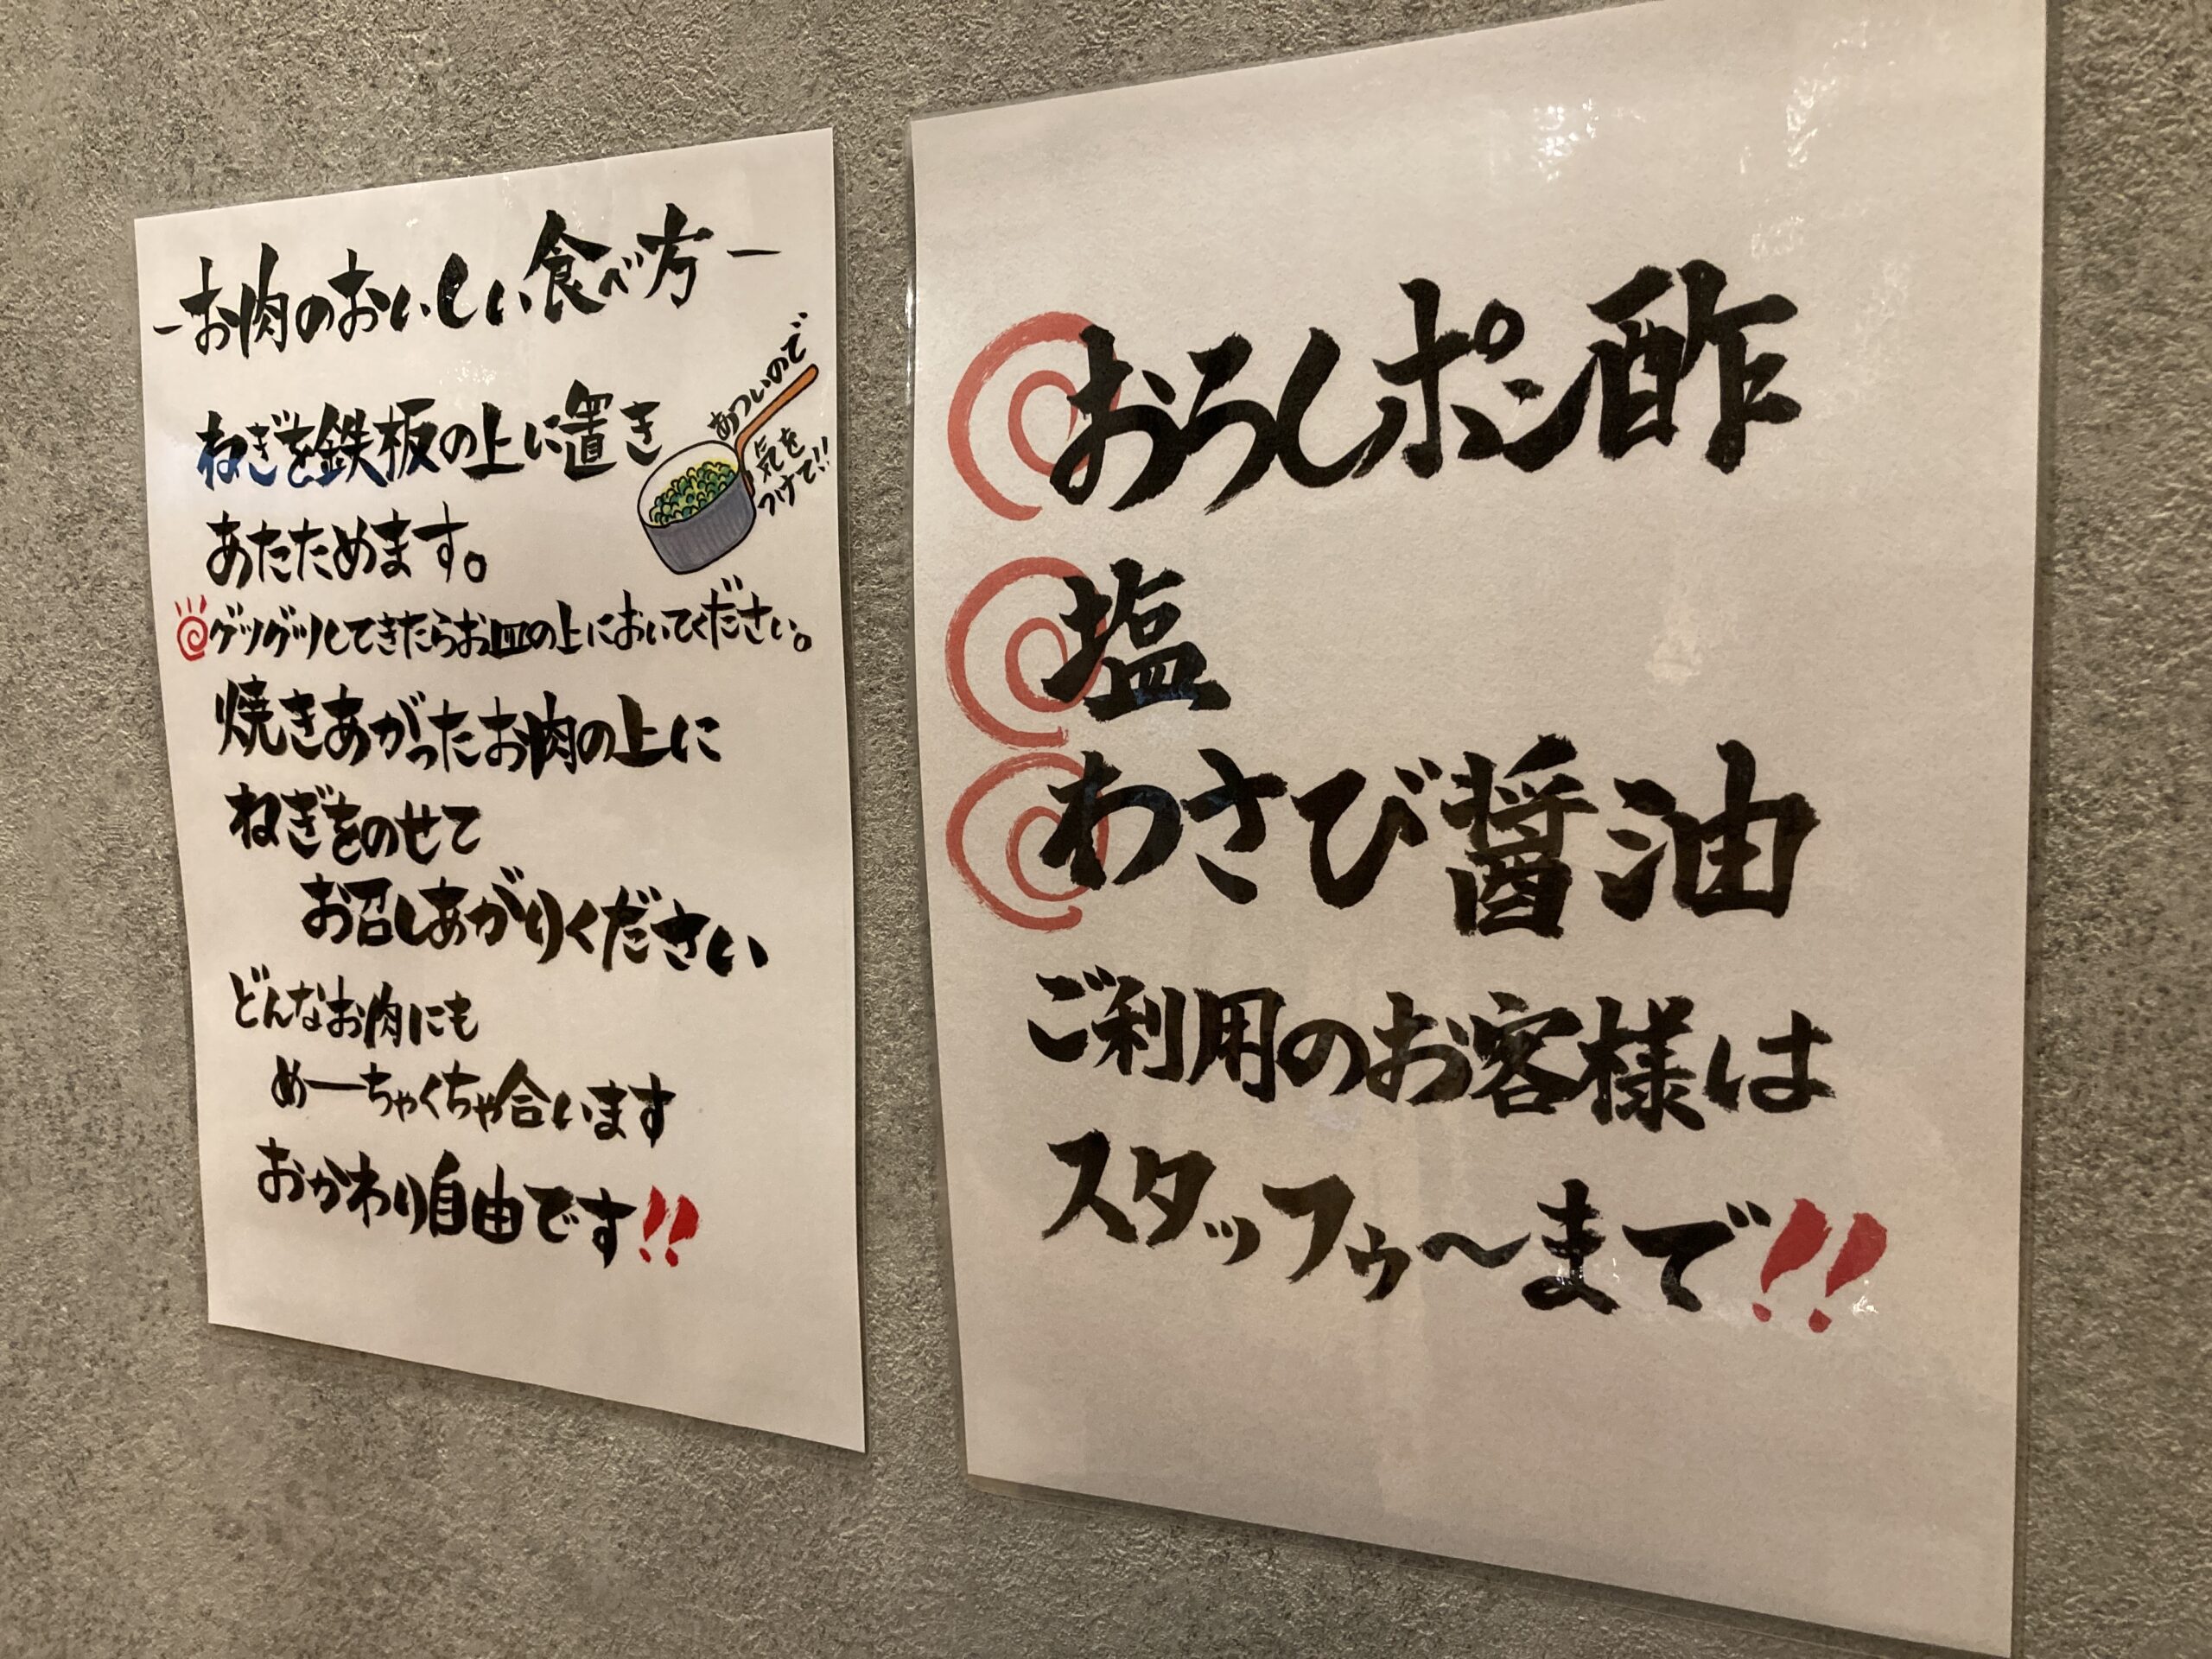 -お肉のおいしい食べ方-
ねぎを鉄板の上に置き
あたためます。
あついので
気を
つけて!!
グツグツしてきたらお皿の上においてください。
焼きあがったお肉の上に
ねぎをのせて
お召しあがりください
どんなお肉にも
めーちゃくちゃ合います
おかわり自由です!!
おろしポン酢
塩
わさび醤油
ご利用のお客様は
スタッフゥ〜まで!!